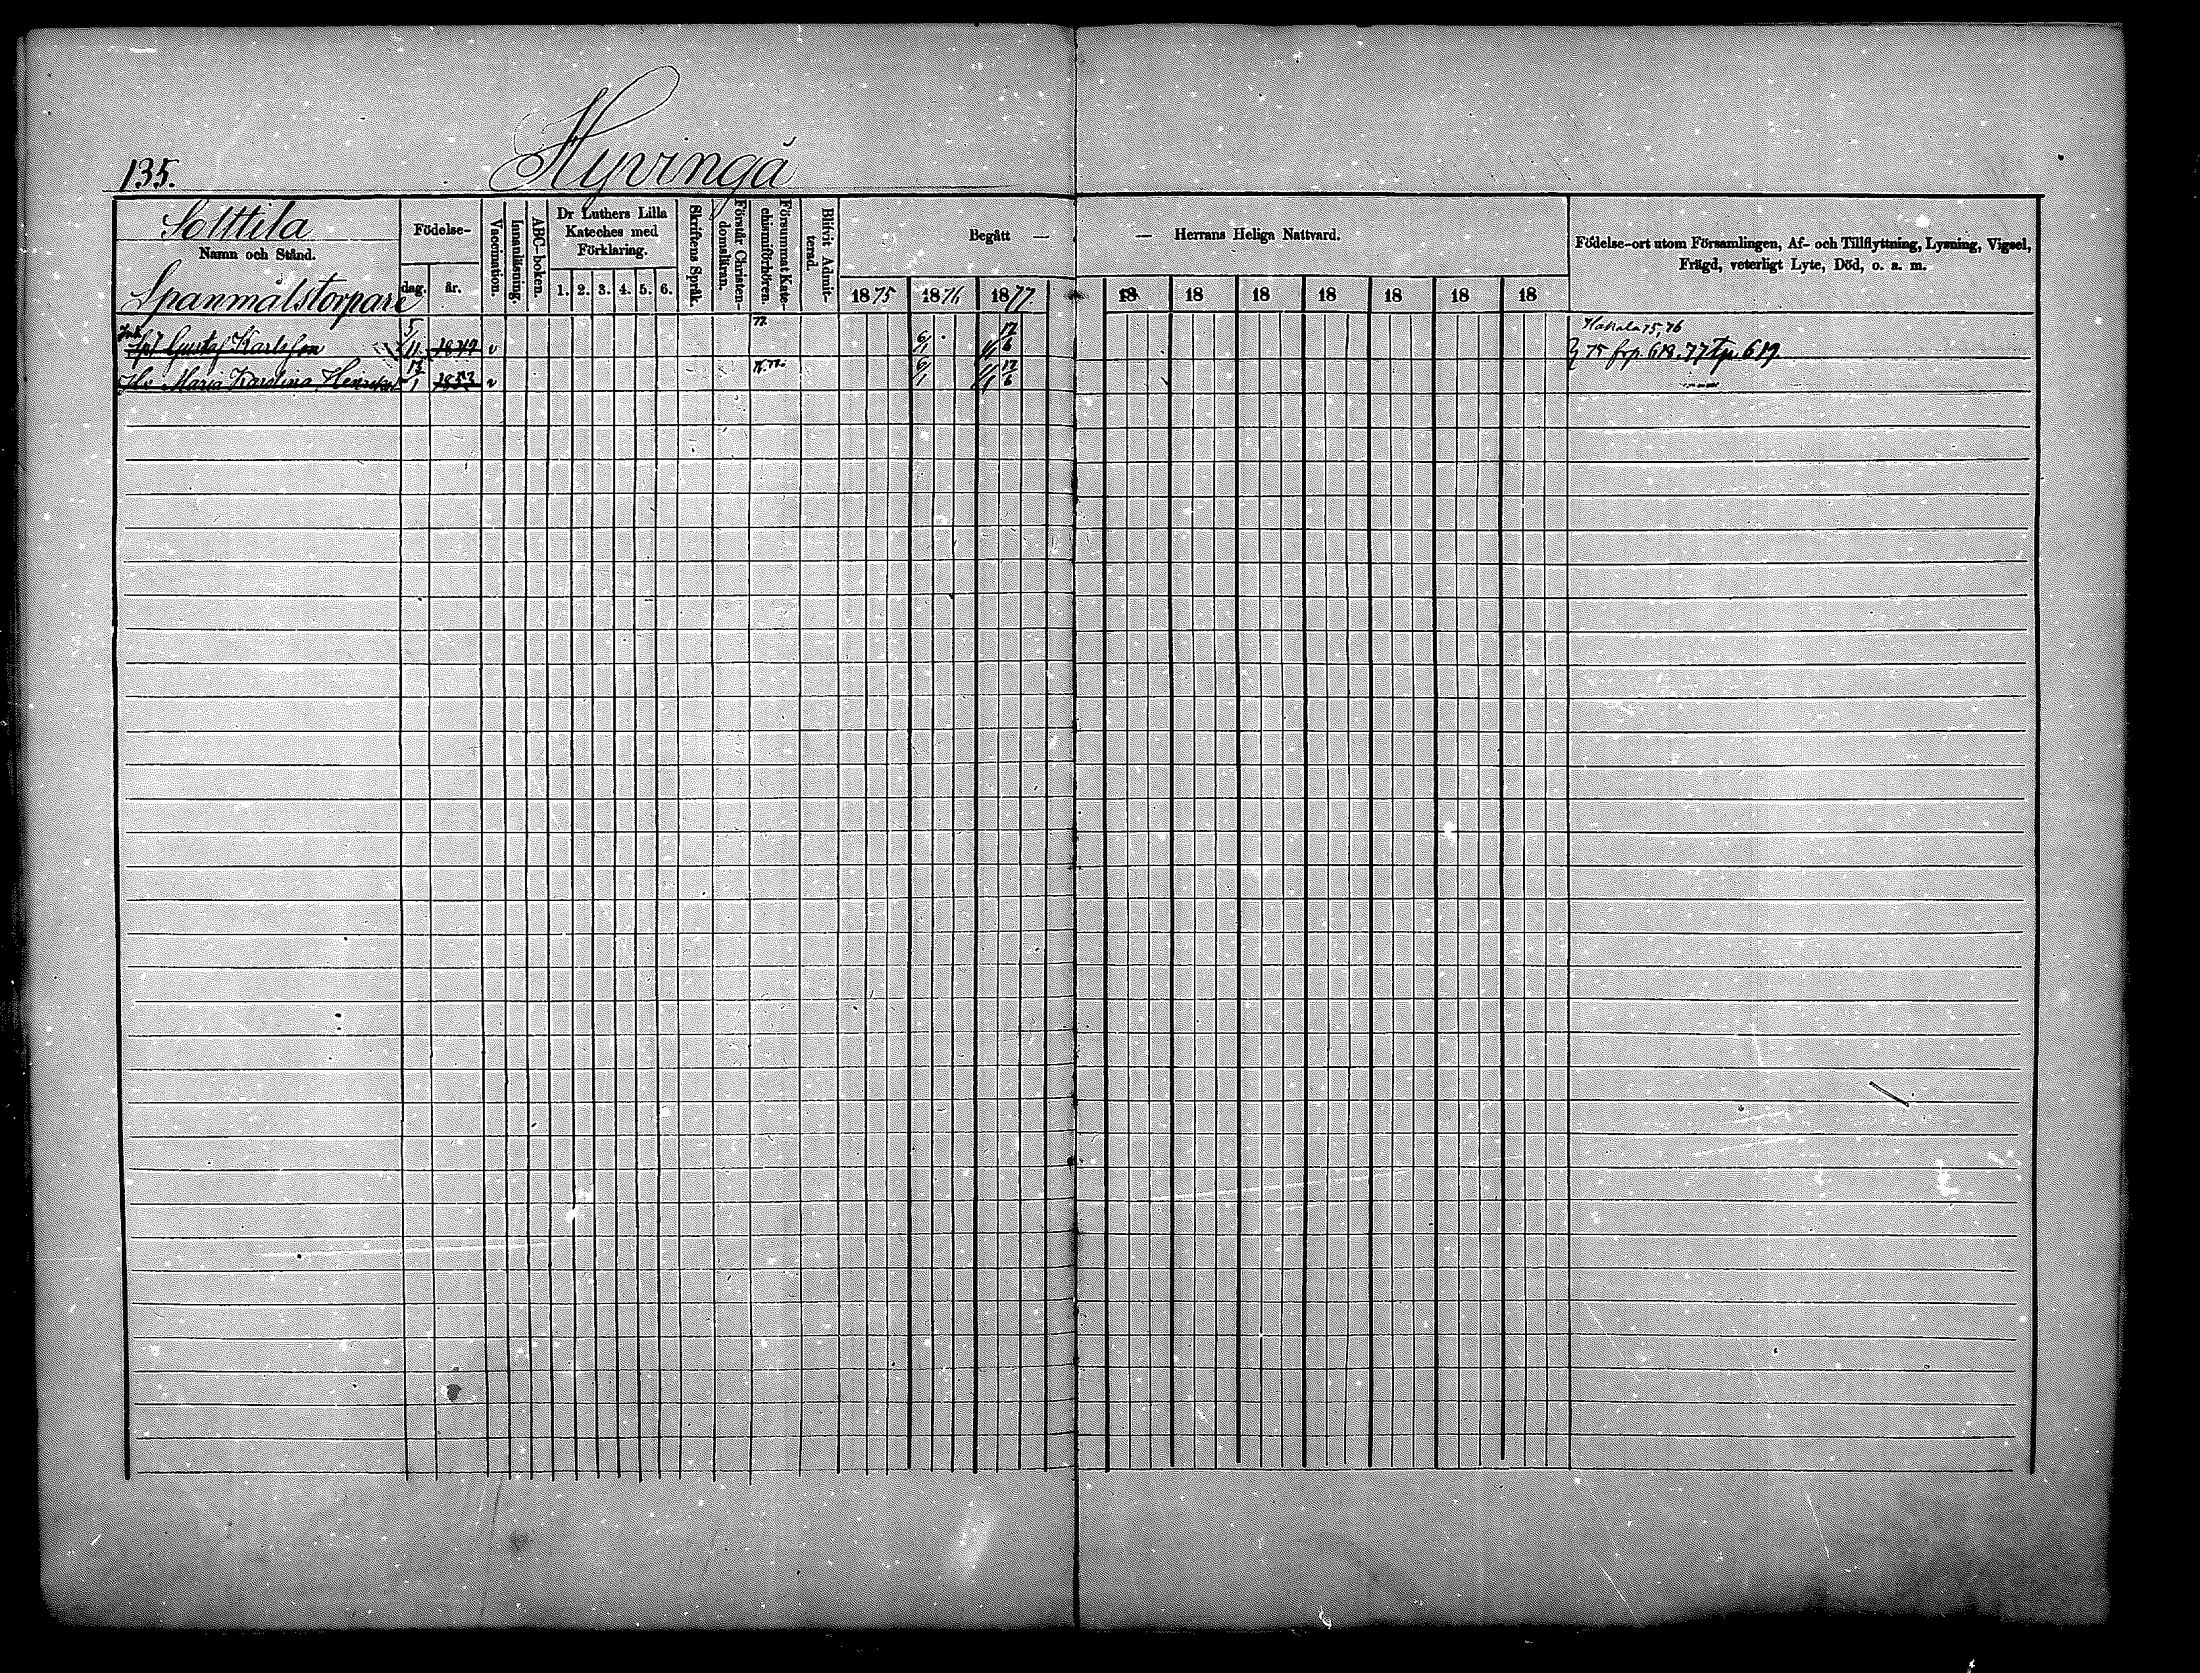 135.
Hyvingå
Solttila
Namn och Stånd.
Spanmålstorpare
Födelse-
dag. år.
Vaccination.
Innanläsning.
ABC-boken.
Dr Luthers Lilla
Kateches med
Förklaring.
1. 2. 3. 4. 5. 6.
Skriftens Språk.
Förstår Christen-
domsläran.
Försummat Kate-
chismiförhören.
Blifvit Admit-
terad.
Begått —
— Herrans Heliga Nattvard.
1875 1876 1877 18 18 18 18 18 18 18
Födelse-ort utom Församlingen, Af- och Tillflyttning, Lysning, Vigsel,
Frägd, veterligt Lyte, Död, o. a. m.
Gustaf Karlsson 5/11 1849 v 77 6/1 17/6
75 frp. 618. 77 tp 619
Hu Maria Karolina 13/1 1853 v 6/1 17/6